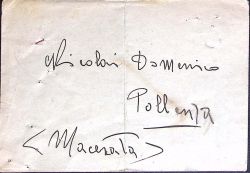 Nicolai Domenico
Pollenza
<Macerata>